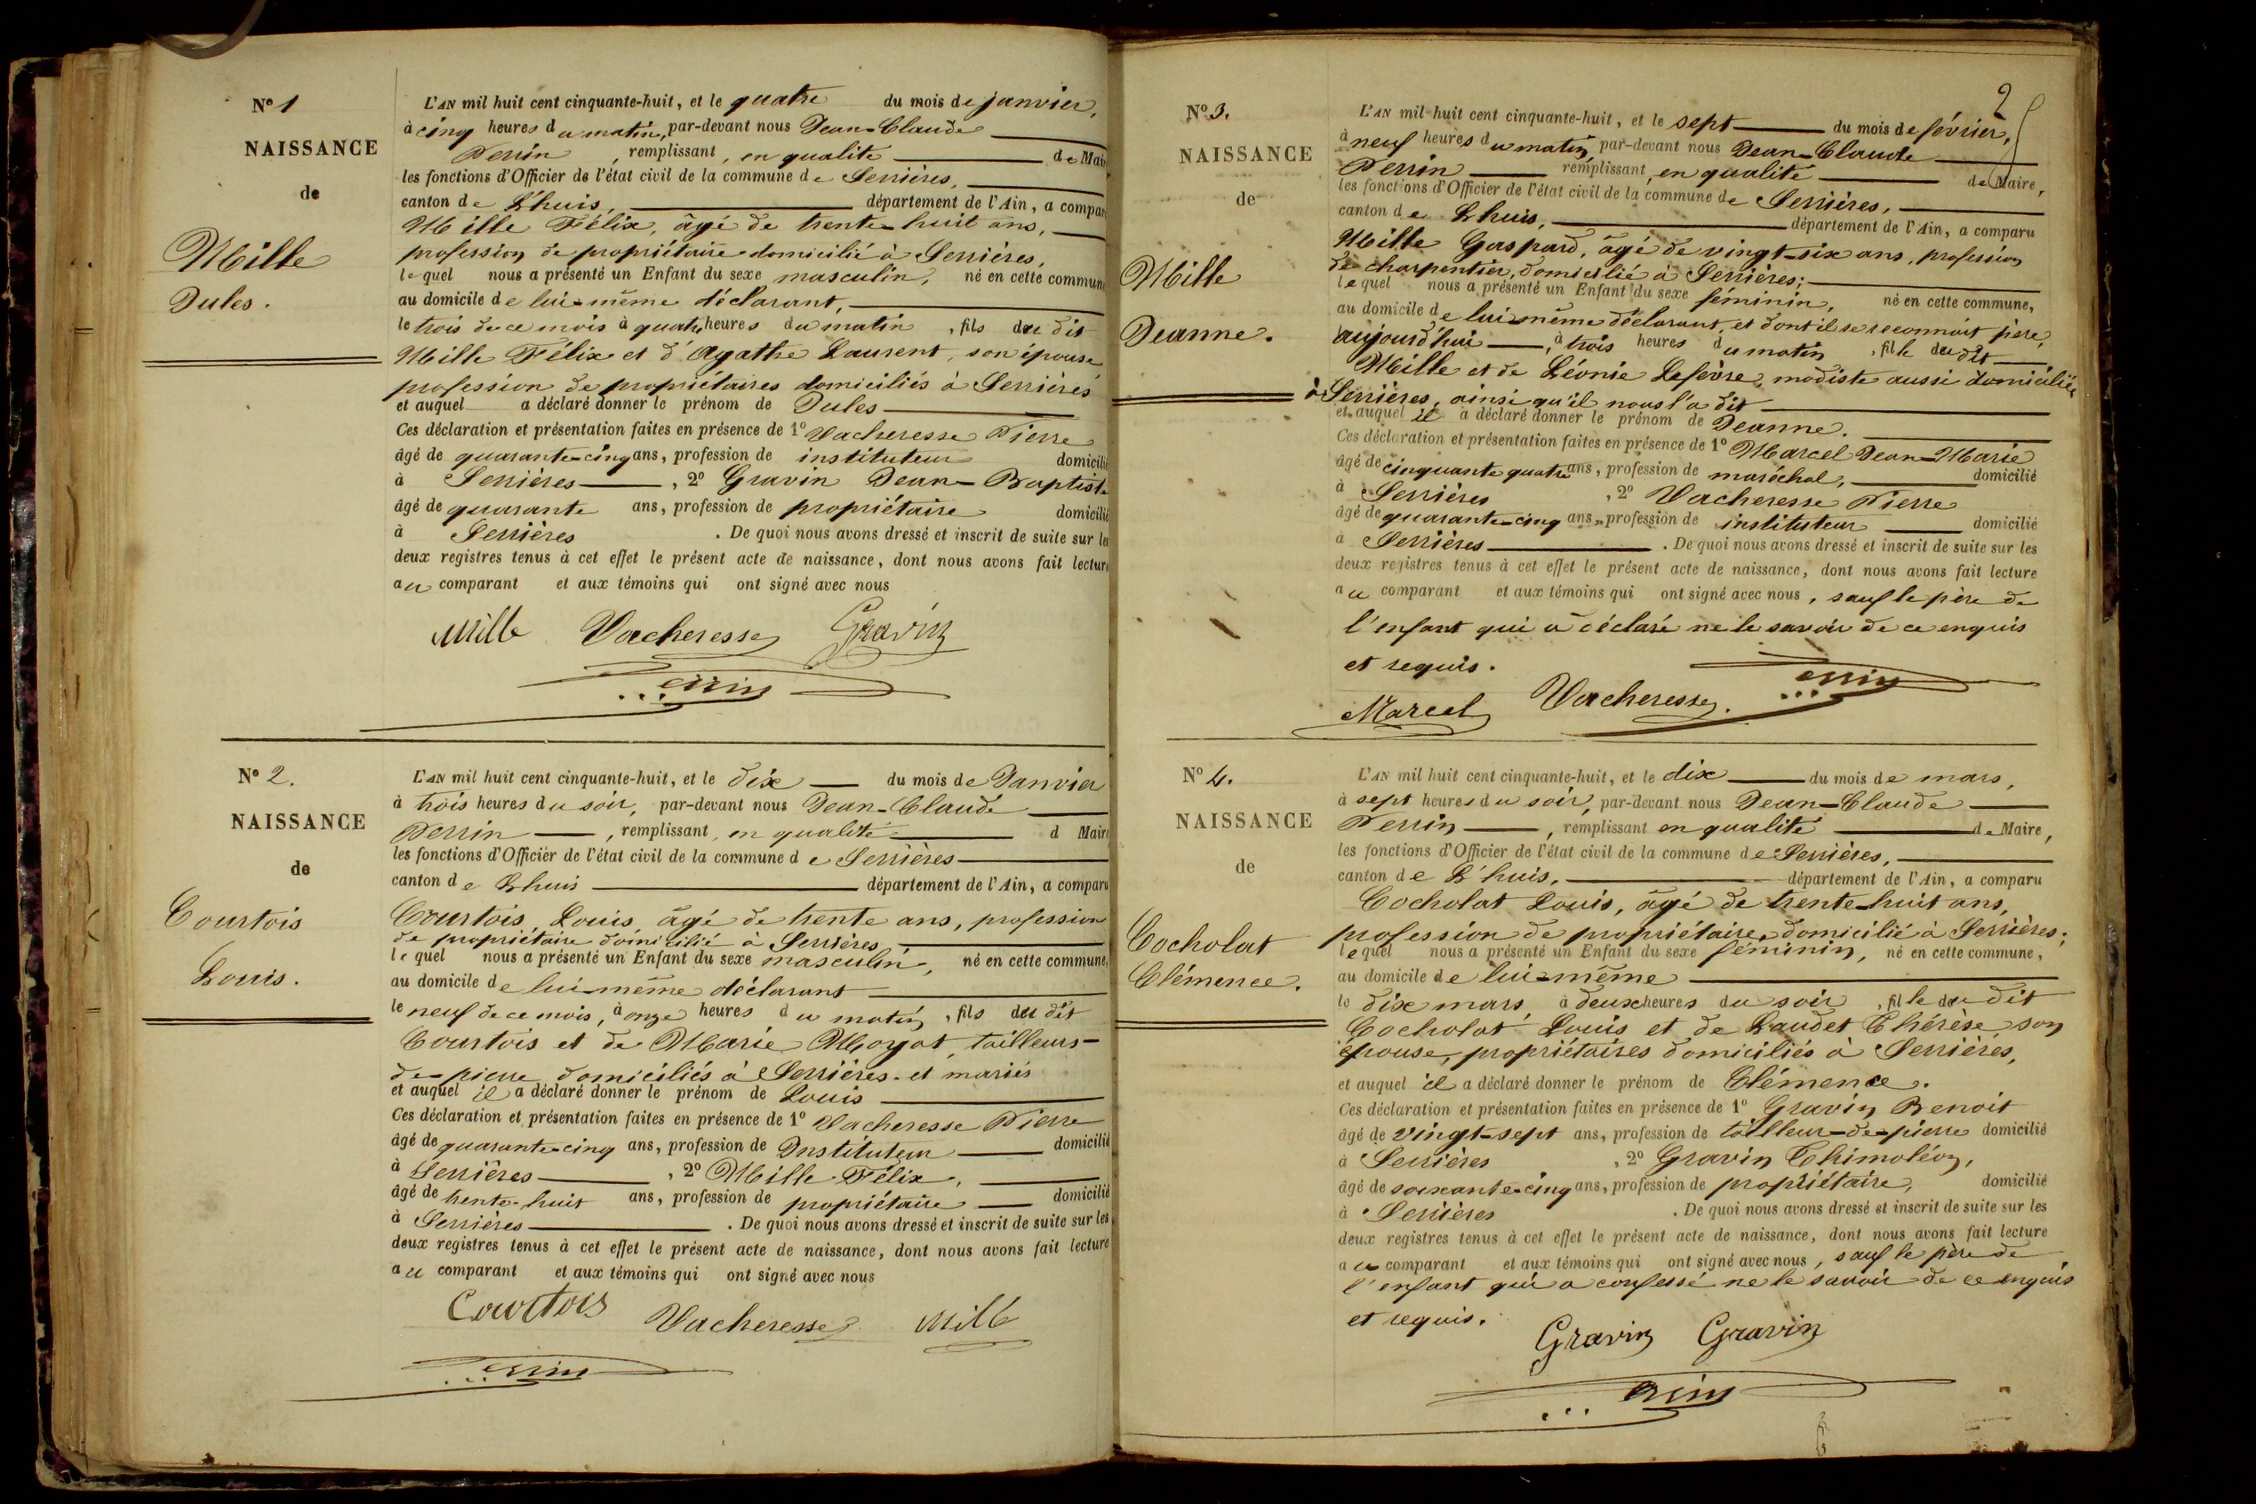 N° 1
NAISSANCE
de
Mille
Jules.
L'AN mil huit cent cinquante-huit, et le quatre du mois de janvier,
à cinq heures du matin, par-devant nous Jean-Claude
Perrin, remplissant, en qualité de Mair
les fonctions d'Officier de l'état civil de la commune de Serrières,
canton de L'huis, département de l'Ain, a compar
Mille Félix, âgé de trente-huit ans,
profession de propriétaire domicilié à Serrières,
lequel nous a présenté un Enfant du sexe masculin, né en cette commune
au domicile de lui-même déclarant,
le trois de ce mois à quatre heures du matin, fils du dit
Mille Félix et d'Agathe Laurent, son épouse
profession de propriétaires domiciliés à Serrières
et auquel a déclaré donner le prénom de Jules
Ces déclaration et présentation faites en présence de 1° Vacheresse Pierre
âgé de quarante-cinq ans, profession de instituteur domicilié
à Serrières, 2° Gravin Jean-Baptiste
âgé de quarante ans, profession de propriétaire domicilié
à Serrières. De quoi nous avons dressé et inscrit de suite sur les
deux registres tenus à cet effet le présent acte de naissance, dont nous avons fait lecture
au comparant et aux témoins qui ont signé avec nous
Mille Vacheresse Gravin
Perrin
N° 2.
NAISSANCE
de
Courtois
Louis.
L'AN mil huit cent cinquante-huit, et le dix du mois de Janvier
à trois heures du soir, par-devant nous Jean-Claude
Perrin, remplissant, en qualité d Maire
les fonctions d'Officier de l'état civil de la commune de Serrières
canton de Lhuis département de l'Ain, a comparu
Courtois Louis âgé de trente ans, profession
de propriétaire domicilié à Serrières,
lequel nous a présenté un Enfant du sexe masculin, né en cette commune,
au domicile de lui-même déclarant
le neuf de ce mois, à onze heures du matin, fils du dit
Courtois et de Marie Moyat, tailleurs-
de-pierre domiciliés à Serrières et mariés
et auquel il a déclaré donner le prénom de Louis
Ces déclaration et présentation faites en présence de 1° Vacheresse Pierre
âgé de quarante-cinq ans, profession de Instituteur domicilié
à Serrières, 2° Mille Félix,
âgé de trente-huit ans, profession de propriétaire domicilié
à Serrières. De quoi nous avons dressé et inscrit de suite sur les
deux registres tenus à cet effet le présent acte de naissance, dont nous avons fait lecture
au comparant et aux témoins qui ont signé avec nous
Courtois Vacheresse Mille
Perrin
2
N° 3.
NAISSANCE
de
Mille
Jeanne.
L'AN mil huit cent cinquante-huit, et le sept du mois de février,
à neuf heures du matin, par-devant nous Jean-Claude
Perrin remplissant, en qualité de Maire,
les fonctions d'Officier de l'état civil de la commune de Serrières,
canton de Lhuis, département de l'Ain, a comparu
Mille Gaspard, âgé de vingt-six ans, profession
de charpentier, domicilié à Serrières;
lequel nous a présenté un Enfant du sexe féminin, né en cette commune,
au domicile de lui même déclarant, et dont il se reconnait père,
aujourd'hui, à trois heures du matin, fille du dit
Mille et de Léonie Lefèvre, modiste aussi domiciliée
à Serrières, ainsi qu'il nous l'a dit
et auquel il a déclaré donner le prénom de Jeanne.
Ces déclaration et présentation faites en présence de 1° Marcel Jean-Marie
âgé de cinquante quatre ans, profession de maréchal, domicilié
à Serrières, 2° Vacheresse Pierre
âgé de quarante-cinq ans, profession de instituteur domicilié
à Serrières. De quoi nous avons dressé et inscrit de suite sur les
deux registres tenus à cet effet le présent acte de naissance, dont nous avons fait lecture
au comparant et aux témoins qui ont signé avec nous, sauf le père de
l'enfant qui a déclaré ne le savoir de ce enquis
et requis.
Marcel Vacheresse. Perrin
N° 4.
NAISSANCE
de
Cocholat
Clémence.
L'AN mil huit cent cinquante-huit, et le dix du mois de mars,
à sept heures du soir, par-devant nous Jean-Claude
Perrin, remplissant en qualité de Maire,
les fonctions d'Officier de l'état civil de la commune de Serrières,
canton de L'huis, département de l'Ain, a comparu
Cocholat Louis, âgé de trente-huit ans,
profession de propriétaire, domicilié à Serrières;
lequel nous a présenté un Enfant du sexe féminin, né en cette commune,
au domicile de lui-même
le dix mars, à deux heures du soir, fille du dit
Cocholat Louis et de Laudet Thérèse, son
épouse, propriétaires domiciliés à Serrières,
et auquel il a déclaré donner le prénom de Clémence.
Ces déclaration et présentation faites en présence de 1° Gravin Benoit
âgé de vingt-sept ans, profession de tailleur-de-pierre domicilié
à Serrières, 2° Gravin Thimoléon,
âgé de soixante-cinq ans, profession de propriétaire, domicilié
à Serrières. De quoi nous avons dressé et inscrit de suite sur les
deux registres tenus à cet effet le présent acte de naissance, dont nous avons fait lecture
au comparant et aux témoins qui ont signé avec nous, sauf le père de
l'enfant qui a confessé ne le savoir de ce enquis
et requis.
Gravin Gravin
Perrin